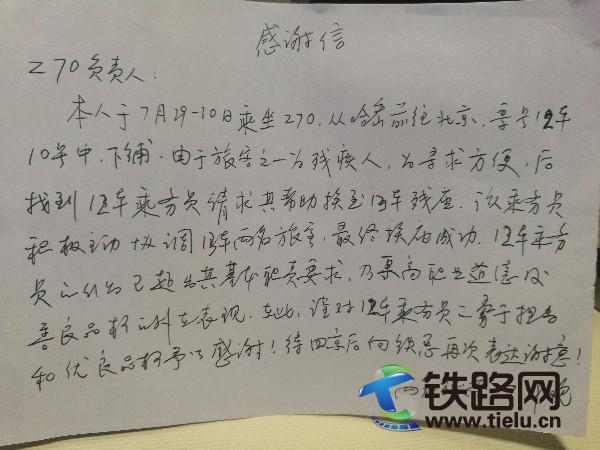 感谢信
Z70负责人：
本人于7月29-30日乘坐Z70，从哈密前往北京，享号12车
10号中、下铺，由于旅客之一为残疾人，为寻求方便，后
找到12车乘务员请求其帮助换至13车残座，该乘务员
积极主动协调13车两名旅客，最终换座成功，12车乘务
员的行为已超出其基本职责要求，乃秉高职业道德及
善良品格的外在表现，在此，谨对12车乘务员之豪于担当
和优良品格予以感谢！待回京后向铁总再次表达谢意！
两
铁路网
www.tielu.cn